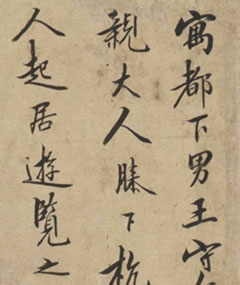 寓都下男王守
親大人膝下杭
人起居遊覽之